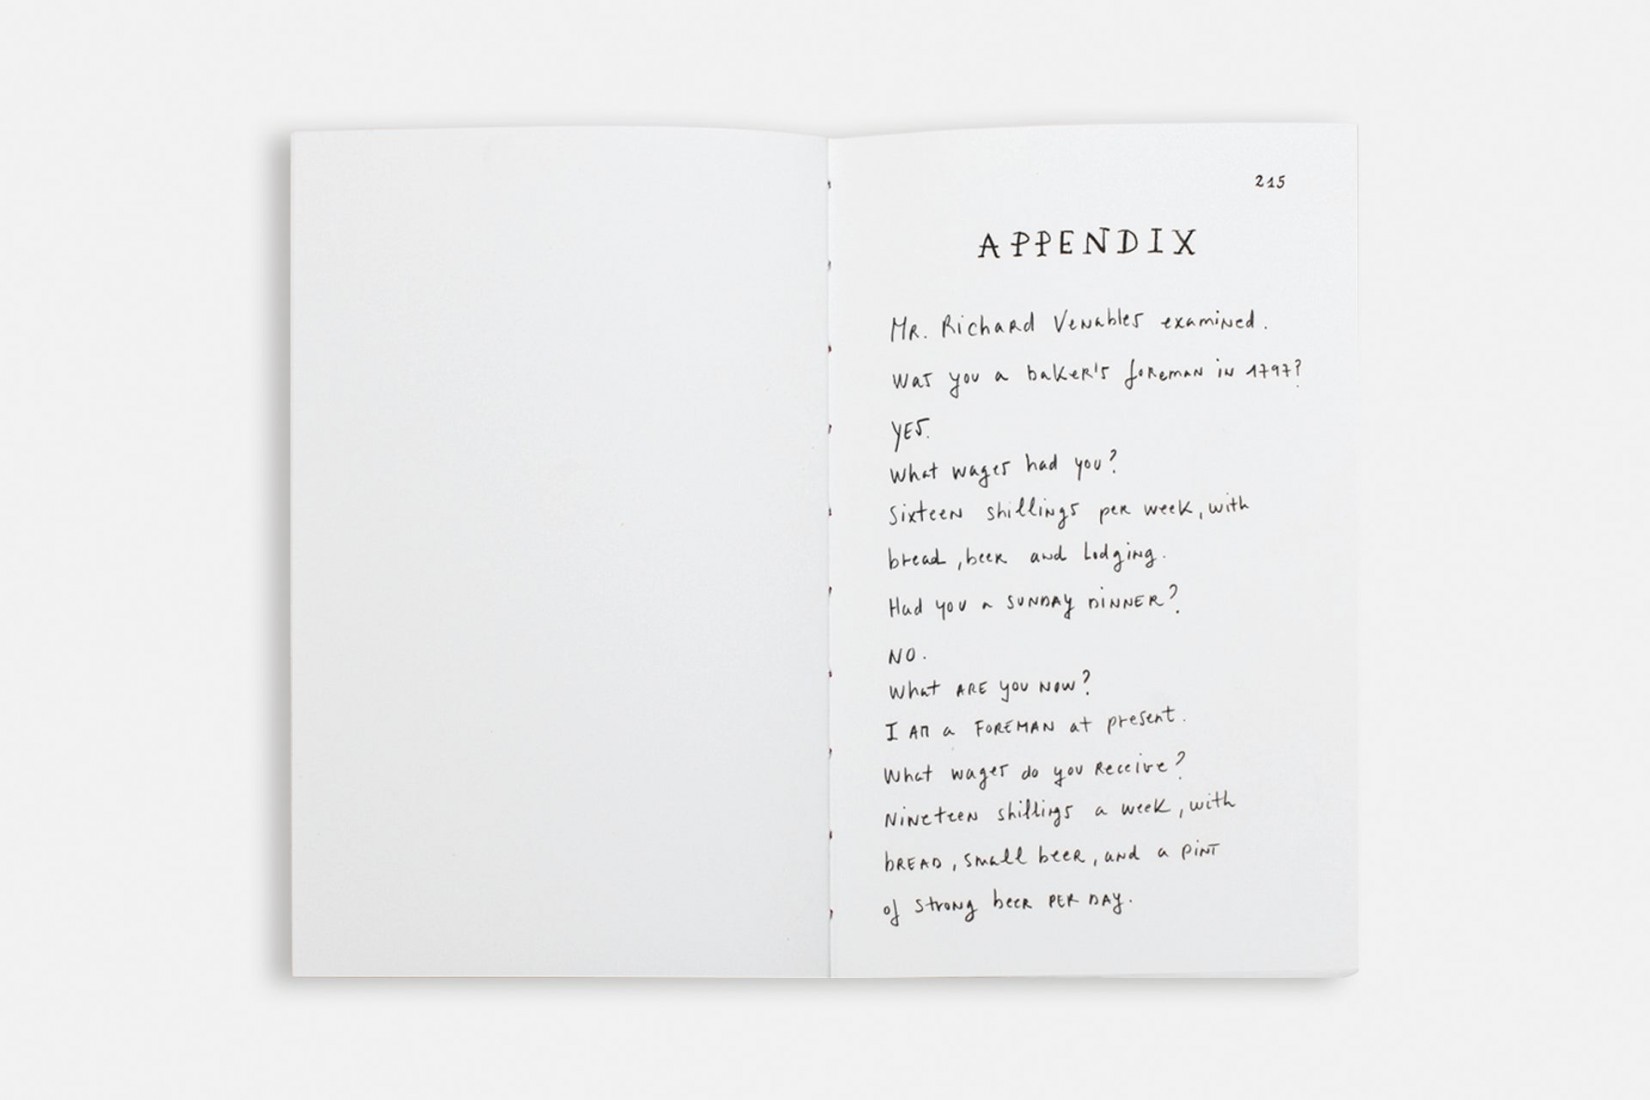 215
APPENDIX
Mr. Richard Venables examined.
Was you a baker's foreman in 1797?
YES.
What wages had you?
Sixteen shillings per week, with
bread, beer and Lodging.
Had you a SUNDAY DINNER?
NO.
What ARE you NOW?
I AM a FOREMAN at present.
What wages do you Receive?
Nineteen shillings a week, with
bREAD, small beer, and a PINT
of strong beer PER DAY.